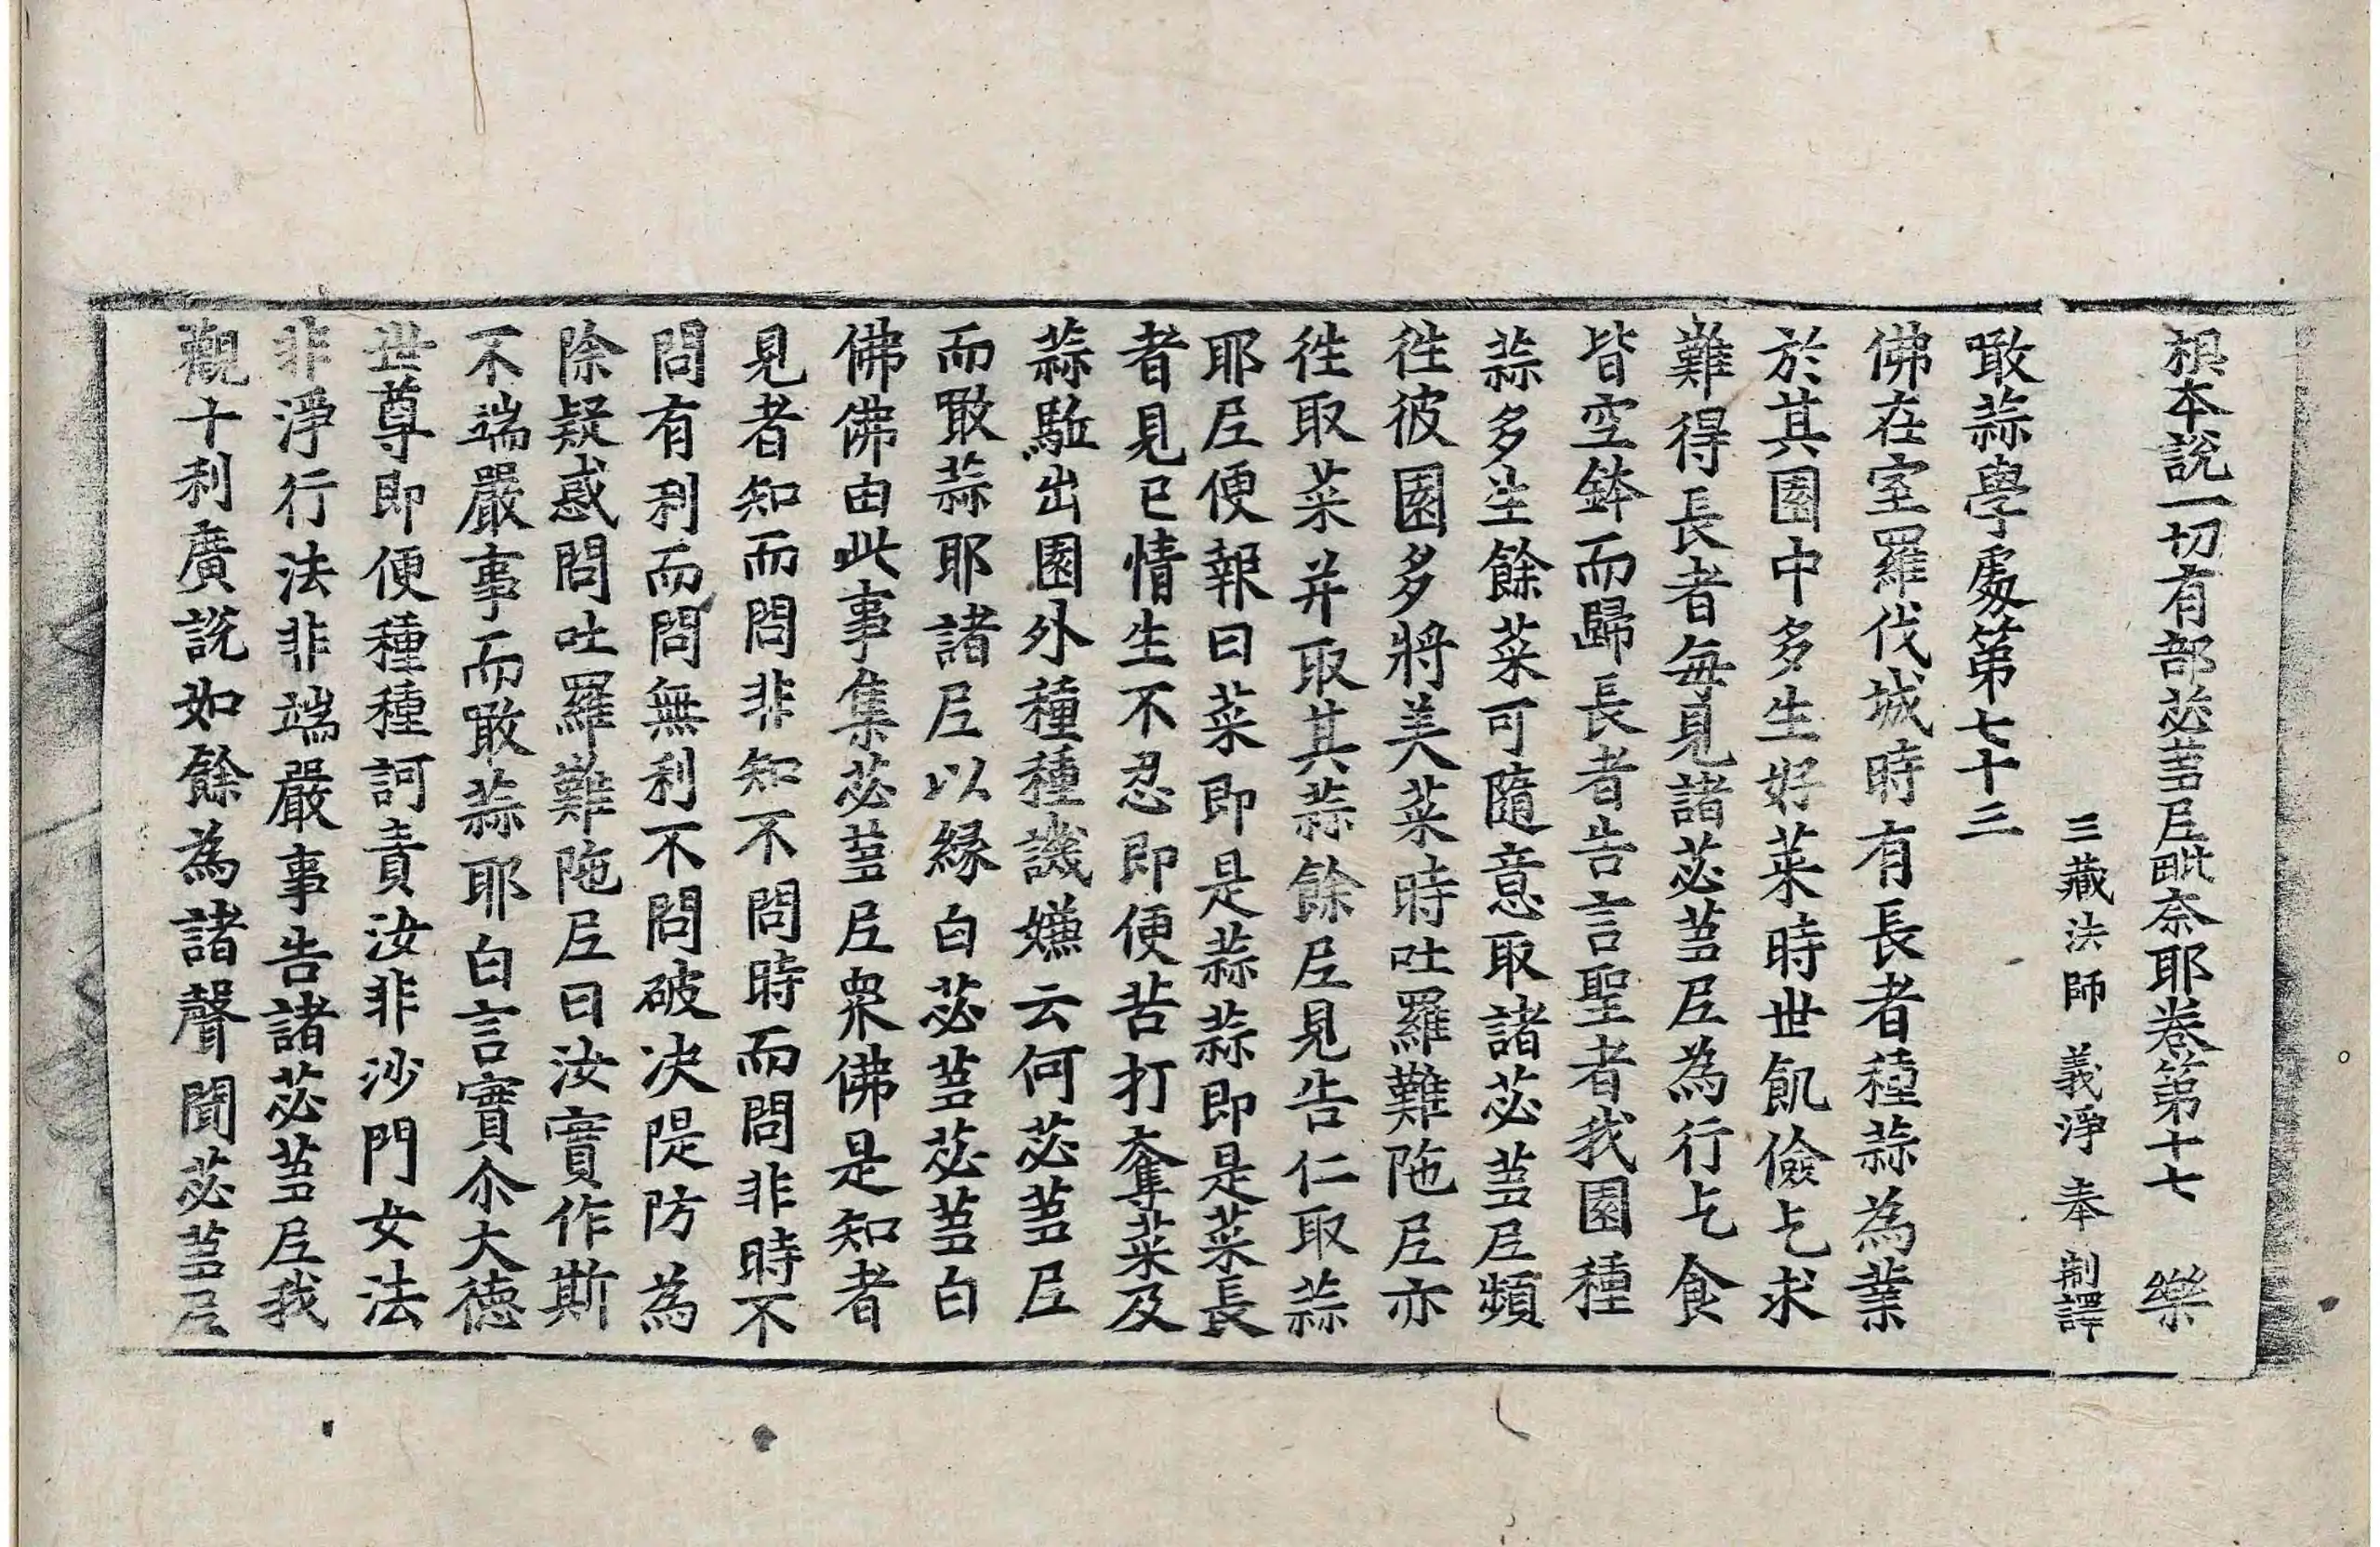 根本說一切有部苾芻尼毗奈耶卷第十七　樂
三藏法師　義淨　奉　制譯
噉蒜學處第七十三
佛在室羅伐城時有長者種蒜為業
於其園中多生好菜時世飢儉乞求
難得長者每見諸苾芻尼為行乞食
皆空鉢而歸長者告言聖者我園種
蒜多生餘菜可隨意取諸苾芻尼頻
徃彼園多將美菜時吐羅難陁尼亦
徃取菜并取其蒜餘尼見告仁取蒜
耶尼便報曰菜即是蒜蒜即是菜長
者見已情生不忍即便苦打奪菜及
蒜駈出園外種種譏嫌云何苾芻尼
而噉蒜耶諸尼以緣白苾芻苾芻白
佛佛由此事集苾芻尼眾佛是知者
見者知而問非知不問時而問非時不
問有利而問無利不問破决隄防為
除疑惑問吐羅難陁尼曰汝實作斯
不端嚴事而噉蒜耶白言實尒大德
世尊即便種種訶責汝非沙門女法
非淨行法非端嚴事告諸苾芻尼我
觀十利廣說如餘為諸聲聞苾芻尼